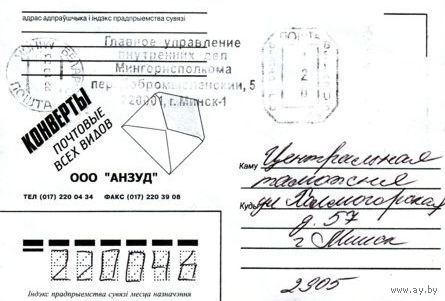 адрас адпраўшчыка і індэкс прадпрыемства сувязі
Главное управление
внутренних дел
Мингорисполкома
пер. Добромысленский, 5
220001, г. Минск-1
ПОШТА
КОНВЕРТЫ
ПОЧТОВЫЕ
ВСЕХ ВИДОВ
ООО "АНЗУД"
ТЕЛ (017) 220 04 34 ФАКС (017) 220 39 08
Каму Центральная
таможня
Куды ул Холмогорская
д. 57
г Минск
2905
220046
Індэкс прадпрыемства сувязі месца назначэння
www.ay.by